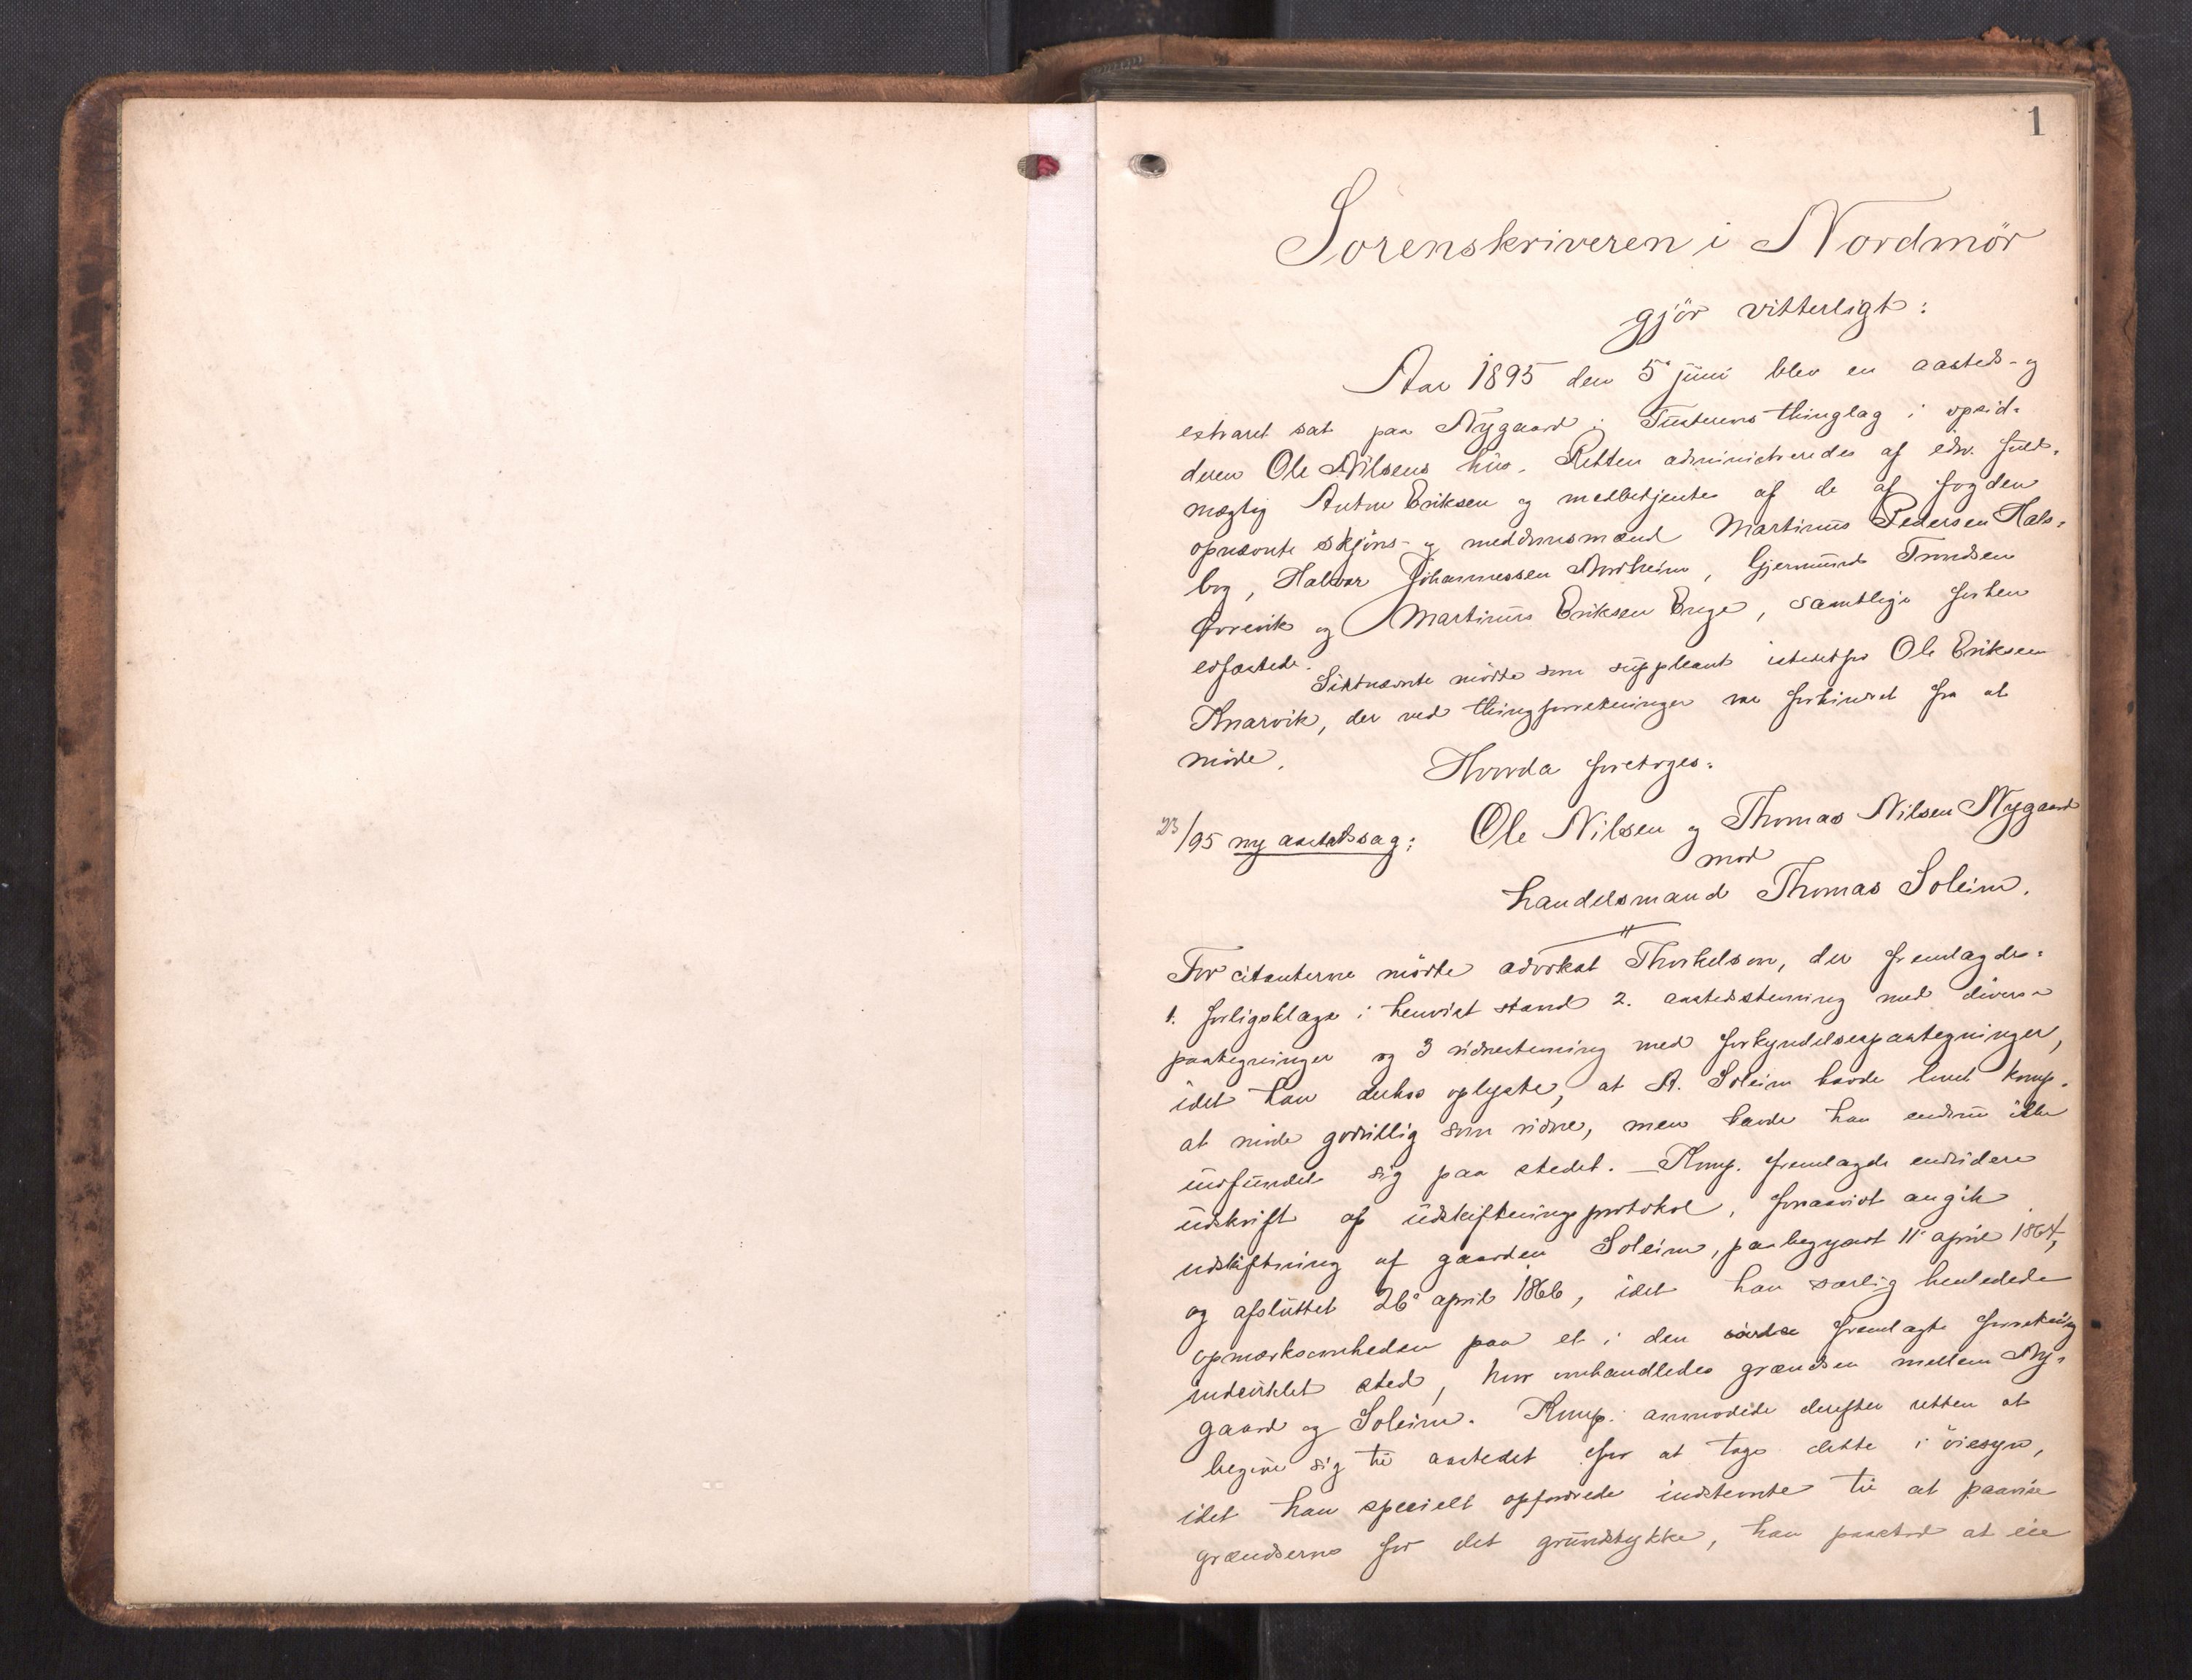 1
Sorenskriveren i Nordmör
gjör vitterligt:
Aar 1895 den 5' juni blev en aasteds- og
extraret sat paa Nygaard i Tusterens thinglag i opsid-
deren Ole Nilsens hus. Retten administreredes af edsv. fuld-
mægtig Anton Eriksen og medbetjentes af de af fogden
opnævnte skjöns- og meddomsmænd Martinus Pedersen Hals-
bog, Halvor Johannessen Nordheim, Gjermund Trondsen
og Martinus Eriksen Enge, samtlige forhen
edfæstede. Sidstnævnte mödte som suppleant istedetfor Ole Eriksen
Knarvik, der ved thingforretninger var forhindret fra at
möde.
Hvorda foretoges:
23/95 ny aastedssag: Ole Nilsen og Thomas Nilsen Nygaard
mod
handelsmand Thomas Soleim.
For citanterne mödte advokat Thorkelson, der fremlagdes:
1. forligsklage i henvist stand 2. aastedsstevning med diverse
paategninger og 3 vidnestevning med forkyndelsespaategninger,
idet han derhos oplyste, at A. Soleim havde lovet komp.
at möde godvillig som vidne, men havde han endnu ikke
indfundet sig paa stedet. – Komp. fremlagde endvidere
udskrift af udskiftningsprotokol, forsaavidt angik
udskiftning af gaarden Soleim, paabegyndt 11' april 1864,
og afsluttet 26' april 1866, idet han særlig henledede
opmærksomheden paa et i den fremlagte forretning
indcirklet sted, hvor omhandledes grændsen mellem Ny-
gaard og Soleim. Komp. anmodede derefter retten at
begive sig til aastedet for at tage dette i öiesyn,
idet han specielt opfordrede indstevnte til at paavise
grændserne for det grundstykke, han paastod at eie